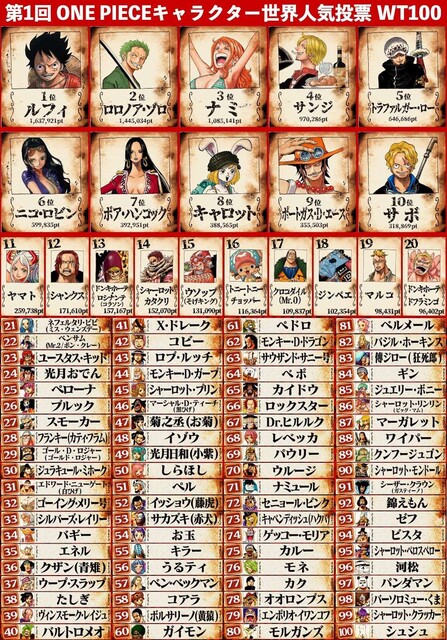 第1回 ONE PIECEキャラクター世界人気投票 WT100
1位 ルフィ 1,637,921pt
2位 ロロノア・ゾロ 1,445,034pt
3位 ナミ 1,085,141pt
4位 サンジ 970,286pt
5位 トラファルガー・ロー 646,686pt
6位 ニコ・ロビン 599,835pt
7位 ボア・ハンコック 392,951pt
8位 キャロット 388,565pt
9位 ポートガス・D・エース 355,503pt
10位 サボ 318,869pt
11 ヤマト 259,738pt
12 シャンクス 171,610pt
13 ドンキホーテ ロシナンテ (コラソン) 157,167pt
14 シャーロット カタクリ 152,070pt
15 ウソップ (そげキング) 131,090pt
16 トニートニー チョッパー 116,364pt
17 クロコダイル (Mr.0) 109,837pt
18 ジンベエ 102,354pt
19 マルコ 98,431pt
20 ドンキホーテ ドフラミンゴ 96,402pt
21 ネフェルタリ・ビビ (ミス・ウェンズデー)
22 ベンサム (Mr.2/ボン・クレー)
23 ユースタス・キッド
24 光月おでん
25 ペローナ
26 ブルック
27 スモーカー
28 フランキー(カティ・フラム)
29 ゴール・D・ロジャー (ゴールド・ロジャー)
30 ジュラキュール・ミホーク
31 エドワード・ニューゲート (白ひげ)
32 ゴーイング・メリー号
33 シルバーズ・レイリー
34 バギー
35 エネル
36 クザン(青雉)
37 ウープ・スラップ
38 たしぎ
39 ヴィンスモーク・レイジュ
40 バルトロメオ
41 X・ドレーク
42 コビー
43 ロブ・ルッチ
44 モンキー・D・ガープ
45 シャーロット・プリン
46 マーシャル・D・ティーチ (黒ひげ)
47 菊之丞(お菊)
48 イゾウ
49 光月日和(小紫)
50 しらほし
51 ペル
52 イッショウ(藤虎)
53 サカズキ(赤犬)
54 お玉
55 キラー
56 うるティ
57 ベン・ベックマン
58 コアラ
59 ボルサリーノ(黄猿)
60 ガイモン
61 ペドロ
62 モンキー・D・ドラゴン
63 サウザンド・サニー号
64 ベポ
65 カイドウ
66 ロックスター
67 Dr.ヒルルク
68 レベッカ
69 パウリー
70 ウルージ
71 ナミュール
72 セニョール・ピンク
73 キャベンディッシュ(ハクバ)
74 ゲッコー・モリア
75 カルー
76 モネ
77 カク
78 オオロンブス
79 エンポリオ・イワンコフ
80 モルガンズ
81 ベルメール
82 バジル・ホーキンス
83 傳ジロー(狂死郎)
84 ギン
85 ジュエリー・ボニー
86 シャーロット・リンリン (ビッグ・マム)
87 マーガレット
88 ワイパー
89 クンフージュゴン
90 シャーロット・モンドール
91 シーザー・クラウン (ガスティーノ)
92 錦えもん
93 ゼフ
94 ビスタ
95 シャーロット・ペロスペロー
96 河松
97 パンダマン
98 バーソロミュー・くま
99 シャーロット・クラッカー
リューシュ